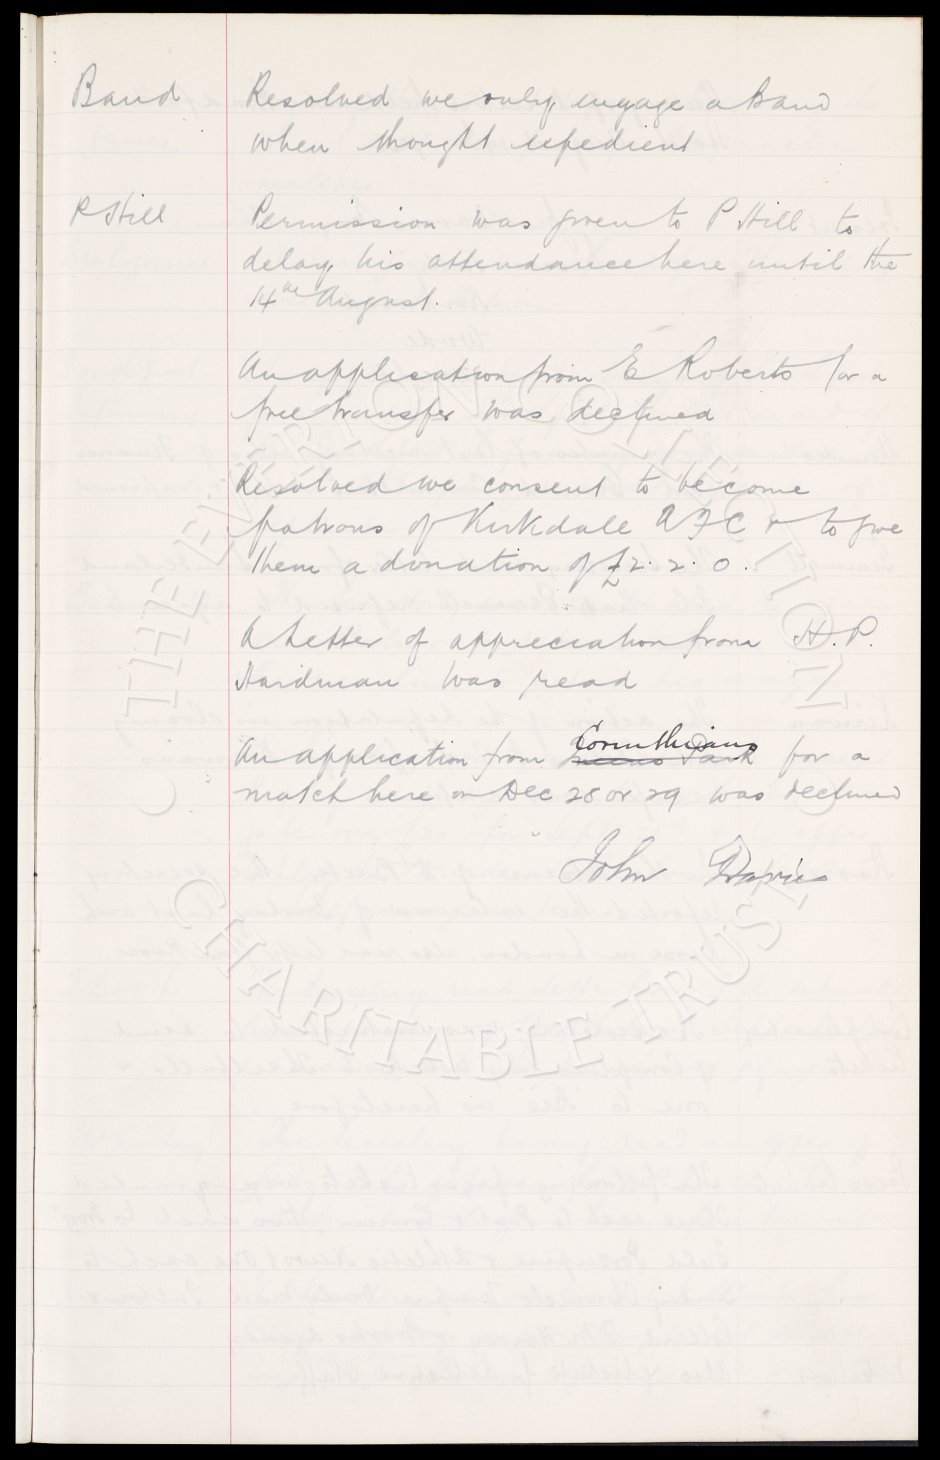 Band Resolved we only engage a Band
when thought expedient
P Hill Permission was given to P Hill to
delay his attendance here until the
14th August.
An application from E Roberts for a
free transfer was declined
Resolved we consent to become
patrons of Kirkdale A F C & to give
them a donation of £2. 2. 0.
A Letter of appreciation from H. P.
Hardman was read
Corinthians
An application from Queens Park for a
match here on Dec 28 or 29 was declined
John Davies
THE EVERTON COLLECTION
CHARITABLE TRUST